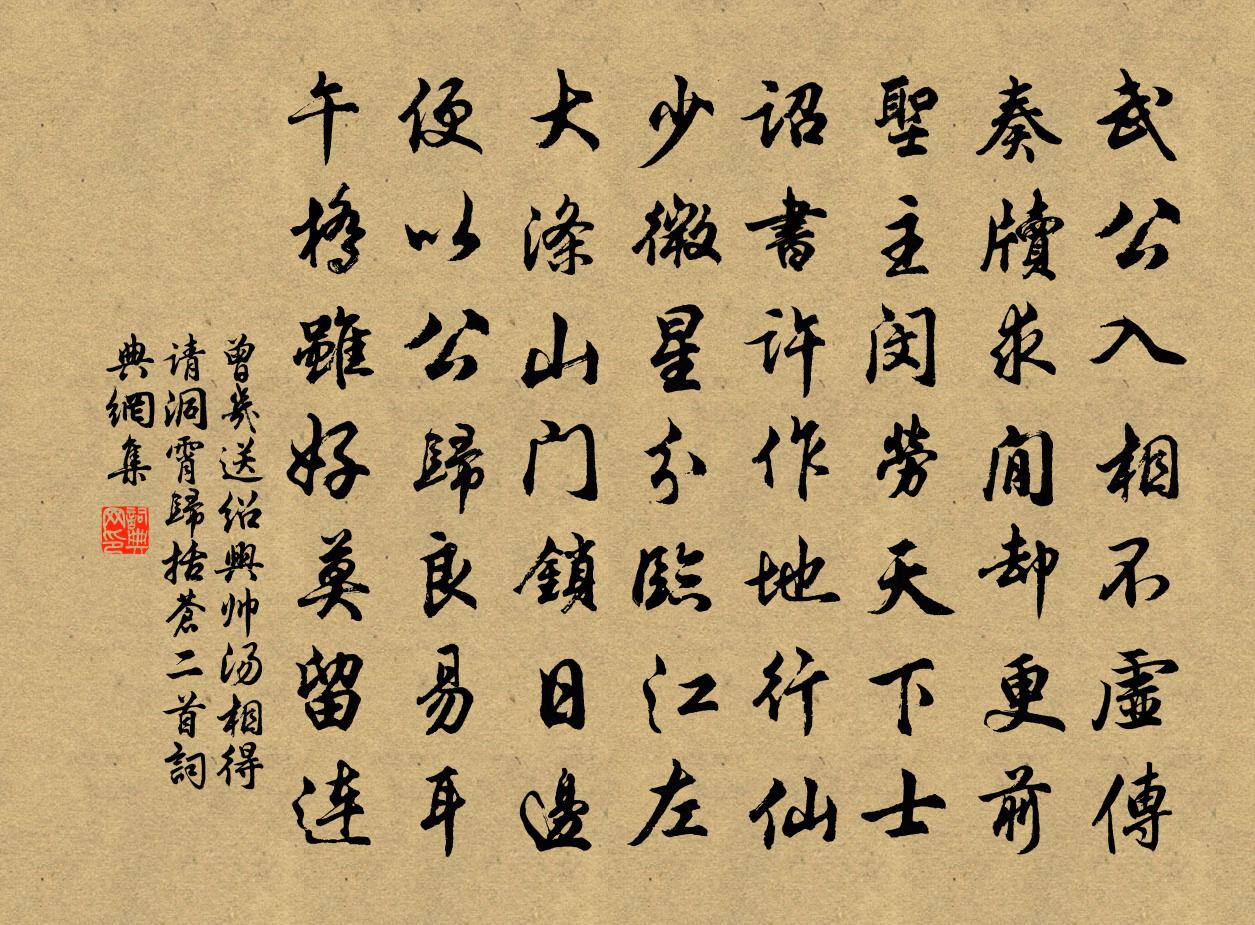 武公入相不虛傳
奏牘求閒却更前
聖主閔勞天下士
詔書許作地行仙
少微星分臨江左
大滌山門鎖日邊
便以公歸良易耳
午橋雖好莫留連
曾幾送绍興帅汤相得
请洞霄歸括蒼二首詞
典網集
詞典网印